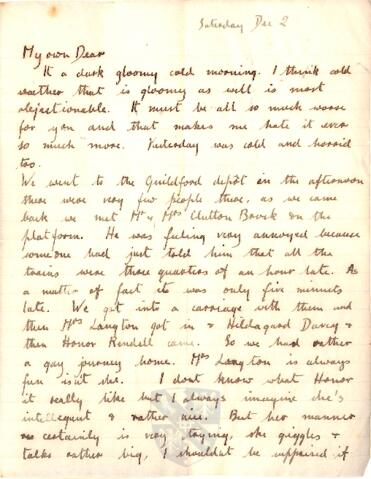 Saturday Dec 2
My own Dear
It a dark gloomy cold morning. I think cold
weather that is gloomy as well is most
objectionable. It must be all so much worse
for you and that makes me hate it ever
so much more. Yesterday was cold and horrid
too.
We went to the Guildford depôt in the afternoon
there were very few people there, as we came
back we met Mr & Mrs Clutton Brock on the
platform. He was feeling very annoyed because
someone had just told him that all the
trains were three quarters of an hour late. As
a matter of fact its was only five minuets
late. We got into a carriage with them and
then Mrs Langton got in & Hildagard Davey &
then Honor Rendell came. So we had rather
a gay journey home. Mrs Langton is always
fun isn't she. I don't know what Honor
it really like but I always imagine she's
intellegent & rather nice. But her manner
certainly is very trying, she giggles &
talks rather big, I shouldn't be suppaired if